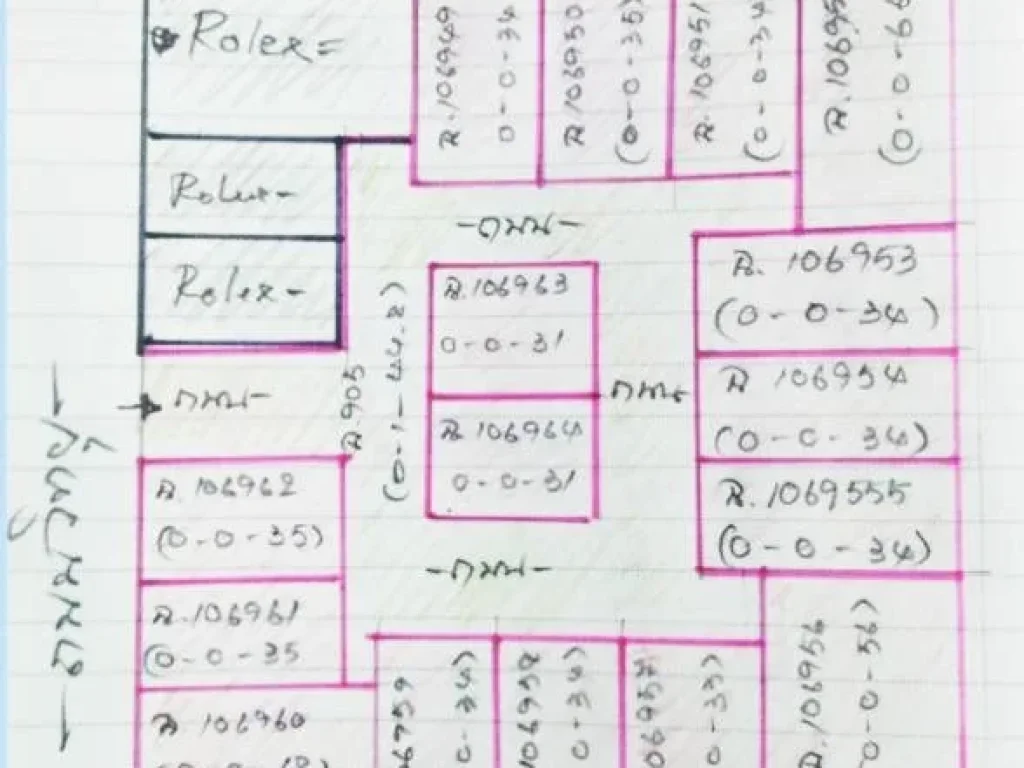 Rolex=
ฉ.106949
0-0-34
ฉ.106950
(0-0-35)
ฉ.106951
(0-0-34
ฉ.10695
(0-0-6
Rolex-
Rolex-
-ถนน-
ฉ.106963
0-0-31
ฉ.106964
0-0-31
ฉ. 106953
(0-0-34)
ฉ 106954
(0-0-34)
ฉ.1069555
(0-0-34)
ถนน-
ถนน
ฉ.905
(0-1-44.2)
ฉ.106962
(0-0-35)
ฉ.106961
(0-0-35
-ถนน-
ฉ.106960
6759
0-34)
106958
0-34)
06957
0-33)
ฉ.106956
0-0-56)